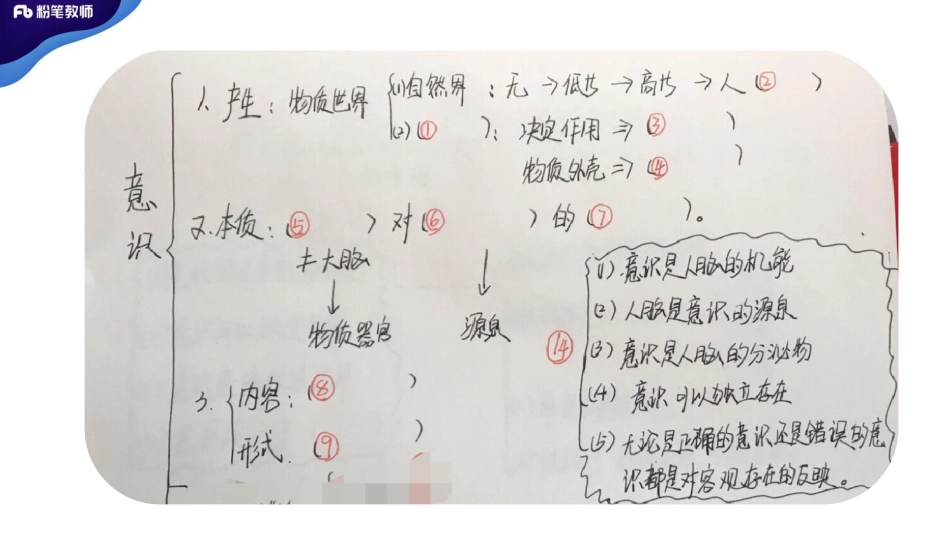 粉笔教师
意识
1、产生：物质世界
(1)自然界：无→低等→高等→人(② )
(2)(① )：决定作用⇒(③ )
物质外壳⇒(④ )
2.本质：(⑤ )对(⑥ )的(⑦ )。
≠大脑
↓
物质器官
↓
源泉
3.
内容：(⑧ )
形式.(⑨ )
⑭
(1)意识是人脑的机能
(2)人脑是意识的源泉
(3)意识是人脑的分泌物
(4)意识可以独立存在
(5)无论是正确的意识还是错误的意
识都是对客观存在的反映。